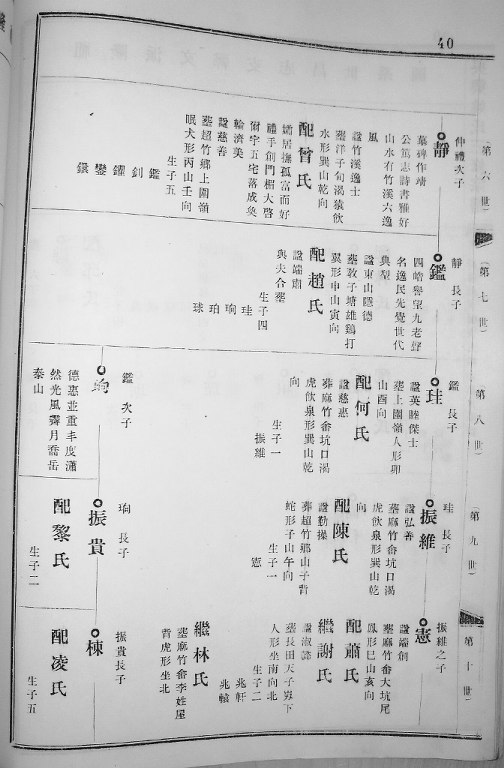 40
(第六世)
仲禮次子
靜
墓碑作靖
公篤志詩書雅好
山水有竹溪六逸
風
諡竹溪逸士
塟洋子旬渴猿飲
水形巽山乾向
配曾氏
孀居撫孤富而好
禮手創門楣大啓
爾宇五宅落成奐
輪濟美
諡慈善
塟超竹鄉上圍嶺
眠犬形丙山壬向
生子五
鑑
釗
鑵
鑾
鎭
(第七世)
靜長子
鑑
四皓譽望九老聲
名逸民先覺世代
典型
諡東山隱德
塟敦子塘雄鷄打
翼形申山寅向
配趙氏
諡端肅
與夫合塟
生子四
珪
珣
珀
球
(第八世)
鑑長子
珪
諡英睦傑士
塟上圍嶺人形卯
山酉向
配何氏
諡慈惠
葬麻竹畬坑口渴
虎飲泉形巽山乾
向
生子一
振維
鑑次子
珣
德惠並重丰度瀟
然光風霽月喬岳
泰山
(第九世)
珪長子
振維
諡弘善
塟麻竹畬坑口渴
虎飲泉形巽山乾
向
配陳氏
諡勤操
葬超竹鄉山子背
蛇形子山午向
生子一
憲
珣長子
振貴
配黎氏
生子二
(第十世)
振維之子
憲
諡端創
塟麻竹畬大坑尾
鳳形巳山亥向
配蕭氏
繼謝氏
諡淑諱
塟長田天子崬下
人形坐南向北
生子二
兆軒
兆轅
繼林氏
塟麻竹畬李姓屋
背虎形坐北
振貴長子
棟
配凌氏
生子五